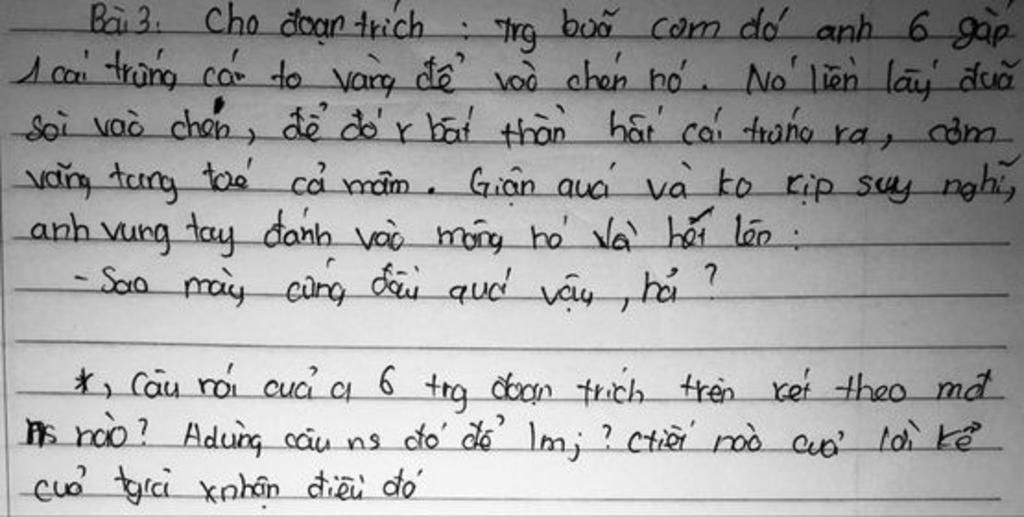 Bài 3: Cho đoạn trích : Trg buổi cơm đó anh 6 gắp
1 cái trứng cá to vàng để vào chén nó. Nó liền lấy đũa
soi vào chén, để đó r bất thần hất cái trứng ra, cơm
văng tung toé cả mâm. Giận quá và ko kịp suy nghĩ,
anh vung tay đánh vào mông nó và hét lên :
- Sao mày cứng đầu quá vậy, hả ?
*, Câu nói của a 6 trg đoạn trích trên xét theo mđ
ns nào? A dùng câu ns đó để lm j ? Ctiết nào của lời kể
của tgiả xnhận điều đó